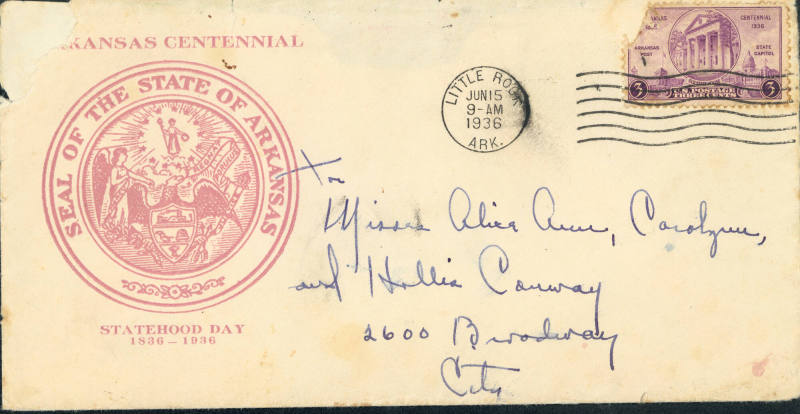 KANSAS CENTENNIAL
SEAL OF THE STATE OF ARKANSAS
STATEHOOD DAY
1836-1936
LITTLE ROCK
JUN 15
9-AM
1936
ARK.
CENTENNIAL
1936
ARKANSAS
POST
STATE
CAPITOL
3 U.S. POSTAGE 3
THREE CENTS
To
Misses Alice Ann, Carolynn,
and Hollis Conway
2600 Broadway
City